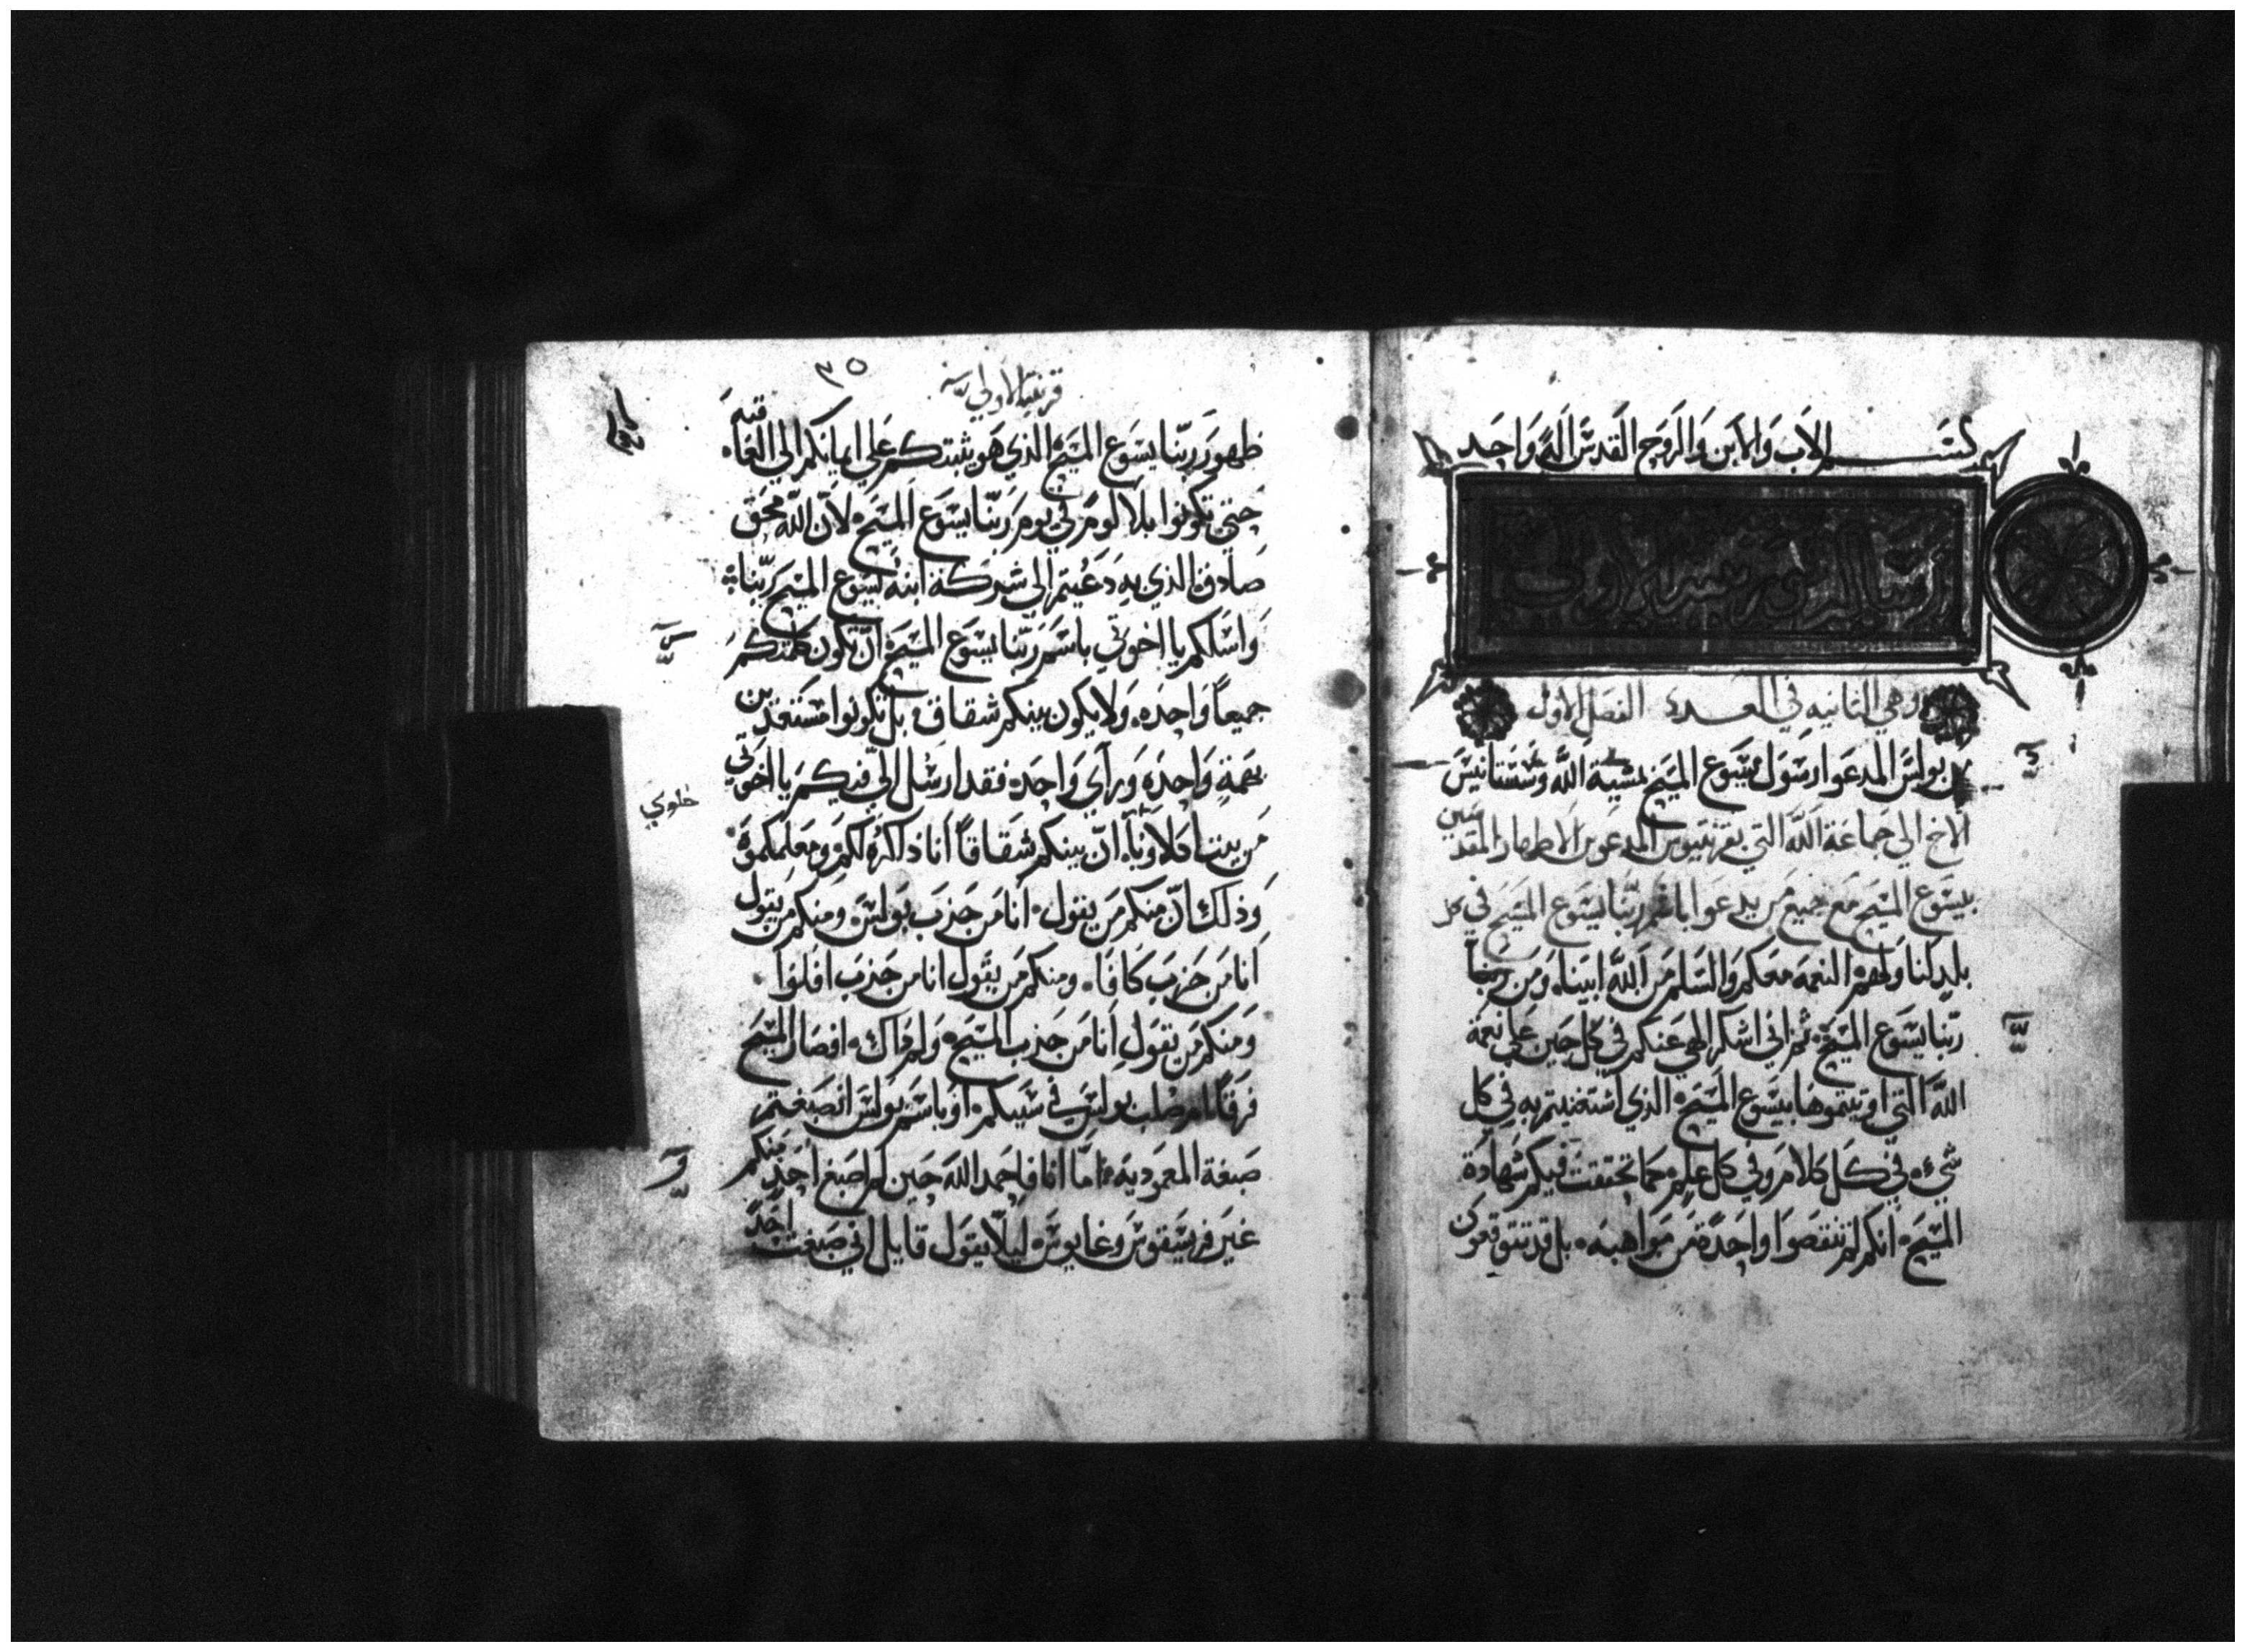 بسم الاب والابن والروح القدس اله واحد
رسالة قورنثيه الاولى
وهي الثانيه في العدد الفصل الاول
من بولس المدعوا رسول يسوع المسيح بمشية الله وسستانيس
الاخ الي جماعة الله التي بقرنثيوس المدعوين الاطهار المقدسين
بيسوع المسيح مع جميع من يدعوا باسم ربنا يسوع المسيح في كل
بلد لنا ولهم النعمه معكم والسلم من الله ابينا ومن
ربنا يسوع المسيح ثم اني اشكر الهي عنكم في كل حين علي نعمة
الله التي اوتيتموها بيسوع المسيح الذي استغنيتم به في كل
شيء في كل كلام وفي كل علم كما تحققت فيكم شهادة
المسيح انكم لم تنقصوا واحدة من مواهبه بل قد تتوقعون
٣٥
قرنتيه الاولي
ظهور ربنا يسوع المسيح الذي هو يثبتكم علي ايمانكم الي العاقبه
حتي تكونوا بلا لوم في يوم ربنا يسوع المسيح لان الله محق
صادق الذي به دعيتم الي شركة ابنه يسوع المسيح ربنا
واسلكم يا اخوتي باسم ربنا يسوع المسيح ان تكون كلمتكم
جميعاً واحده ولا يكون بينكم شقاق بل تكونوا مستعدين
بهمة واحده وراي واحده فقد ارسل الي فيكم يا اخوتي
من بيت خلاوي ان بينكم شقاقاً انا ذاكره لكم ومعلمكموه
خلوي
وذلك ان منكم من يقول انا من حزب بولس ومنكم من يقول
انا من حزب كافا ومنكم من يقول انا من حزب افلوا
ومنكم من يقول انا من حزب المسيح ولم ذاك افصار المسيح
فرقاً ام صلب بولس في سببكم او باسم بولس انصبغتم
صبغة المعموديه اما انا فاحمد الله حين لم اصبغ احد منكم
غير قريسقوس وغايوس ليلا يقول قايل اني صبغت احداً